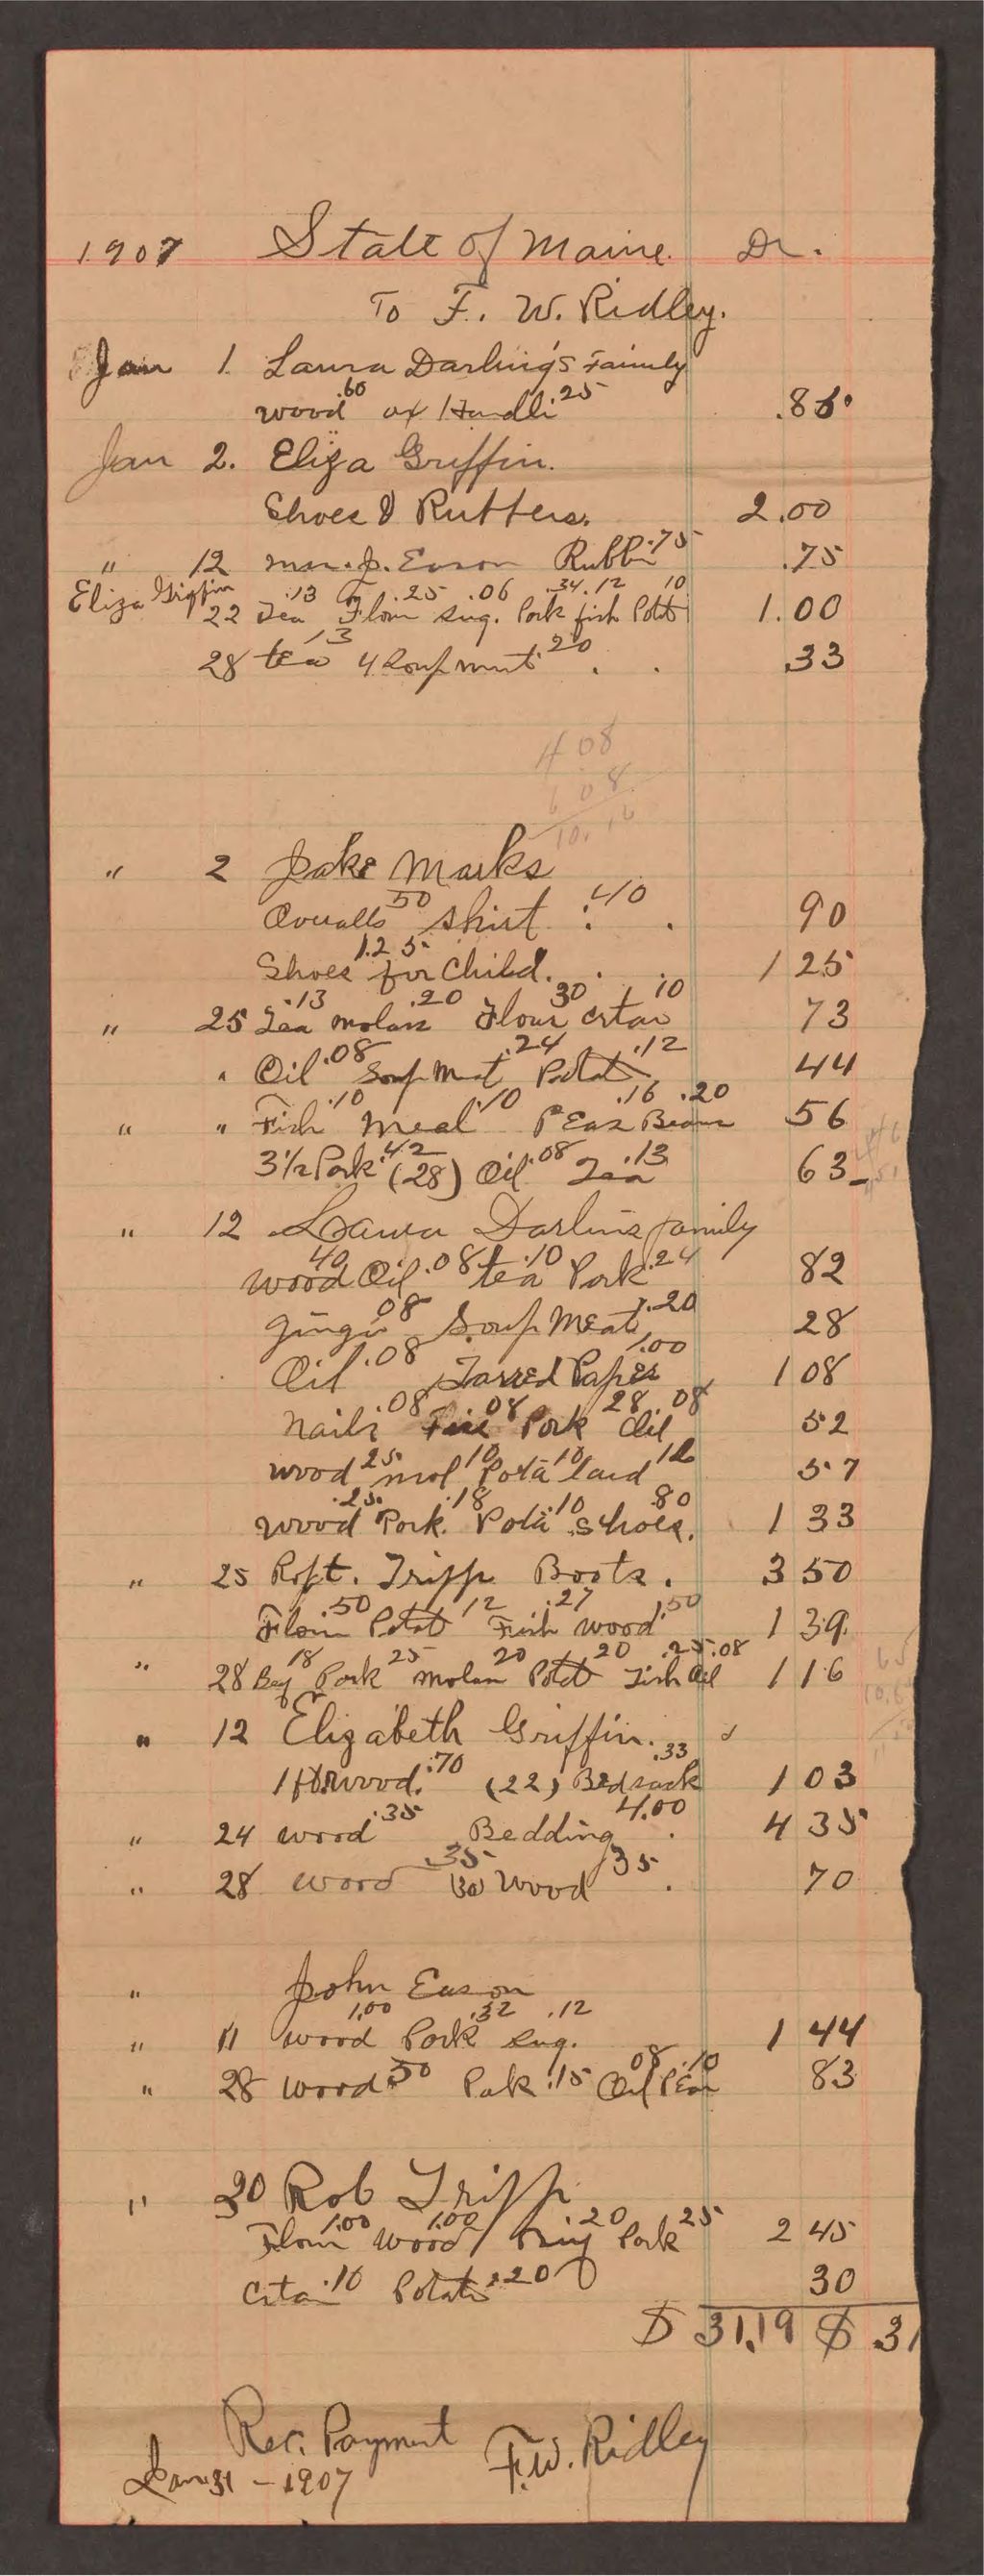 1907 State of Maine Dr.
To F. W. Ridley.
Jan 1. Laura Darling's Family
wood .60 ax Handle .25 .85
Jan 2. Eliza Griffin.
Shoes & Rubbers. 2.00
" 12 Mrs. J. Eason Rubber .75 .75
Eliza Griffin
.13 .25 .06 .34 .12 10
22 Tea Flour Sug. Pork fish Potat 1.00
28 tea 13 4 Soup meat 20 . . .33
4 08
6 08
10.16
" 2 Jake Marks
Overalls 50 Shirt .40 . 90
Shoes for Child. 1.25 . . 1 25
.13 .20 30 .10
" 25 Tea molass Flour Crtar 73
" Oil .08 Soup Meat .24 Potat .12 44
" " Fish .10 Meal .10 Peas .16 Beans .20 56
3 1/2 Pork .42 (28) Oil .08 Tea .13 63
" 12 Laura Darlins family
Wood 40 Oil .08 tea .10 Pork .24 82
Ginger 08 Soup Meat .20 28
Oil .08 Tarred Paper 1.00 1 08
Nails .08 08 Pork 28 Oil .08 52
wood 25 mol 10 Pota 10 lard 12 57
Wood .25 Pork .18 Pota .10 Shoes. 80 1 33
" 25 Robt. Tripp Boots. 3 50
Flour 50 Potat 12 Fish .27 wood .50 1 39
18 25 20 20 .25 .08
" 28 Pork Molass Potat Fish Oil 1 16
" 12 Elizabeth Griffin.
1 ft. Wood. .70 (22) Bedsack .33 1 03
" 24 wood .35 Bedding 4.00 . 4 35
" 28 wood .35 (30) Wood 35 . 70
" John Eason
1.00 .32 .12
" 11 wood Pork Sug. 1 44
" 28 wood 50 Pork .15 Oil 08 Peas .10 83
" 30 Rob Tripp
Flour 1.00 Wood 1.00 20 Pork 25 2 45
Crtar .10 Potats .20 30
$ 31.19 $ 31
Rec. Payment F. W. Ridley
Jan 31 - 1907